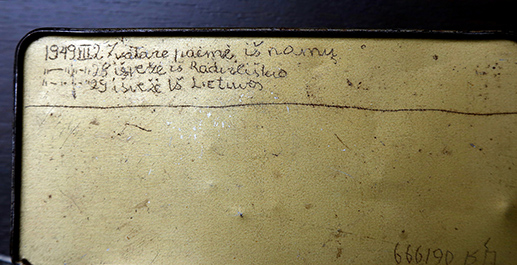 1949 III 2 Žvėtarė paėmė iš namų
—"—"—"28 išvežė iš Radviliškio
—"—"—"29 išvežė iš Lietuvos
666190